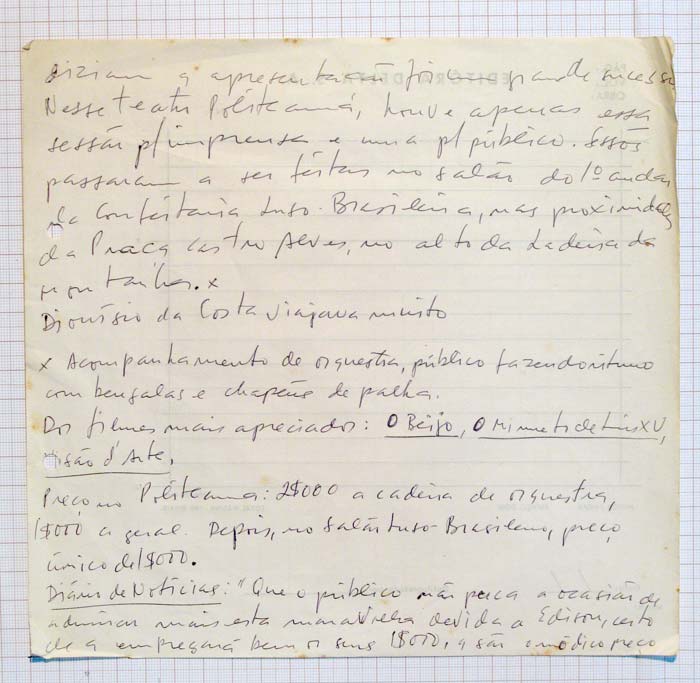 diziam q apresentação foi grande sucesso
Nesse teatro Politeama, houve apenas essa
sessão p/imprensa e uma p/público. Sessões
passaram a ser feitas no salão do 1º andar
da Confeitaria Luso-Brasileira, nas proximidades
da Praça Castro Alves, no alto da Ladeira da
Montanha. x
Dionísio da Costa viajava muito
x Acompanhamento de orquestra, público fazendo ritmo
com bengalas e chapéus de palha.
Dos filmes mais apreciados: O Beijo, O Minueto de Luis XV,
Visão d'Arte.
Preço no Politeama: 2$000 a cadeira de orquestra,
1$000 a geral. Depois, no salão Luso-Brasileiro, preço
único de 1$000.
Diário de Notícias: "Que o público não perca a ocasião de
admirar mais esta maravilha devida a Edison, certo
de q empregará bem os seus 1$000, q são o módico preço